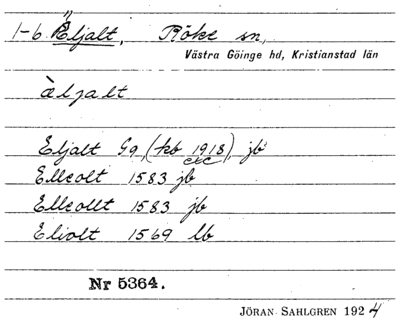 1-6 Eljalt, Röke sn,
Västra Göinge hd, Kristianstad län
àljalt
Eljalt Gq, (kb 1918), jb
Elleolt 1583 jb
Elleollt 1583 jb
Eliolt 1569 lb
Nr 5364.
JÖRAN SAHLGREN 1924